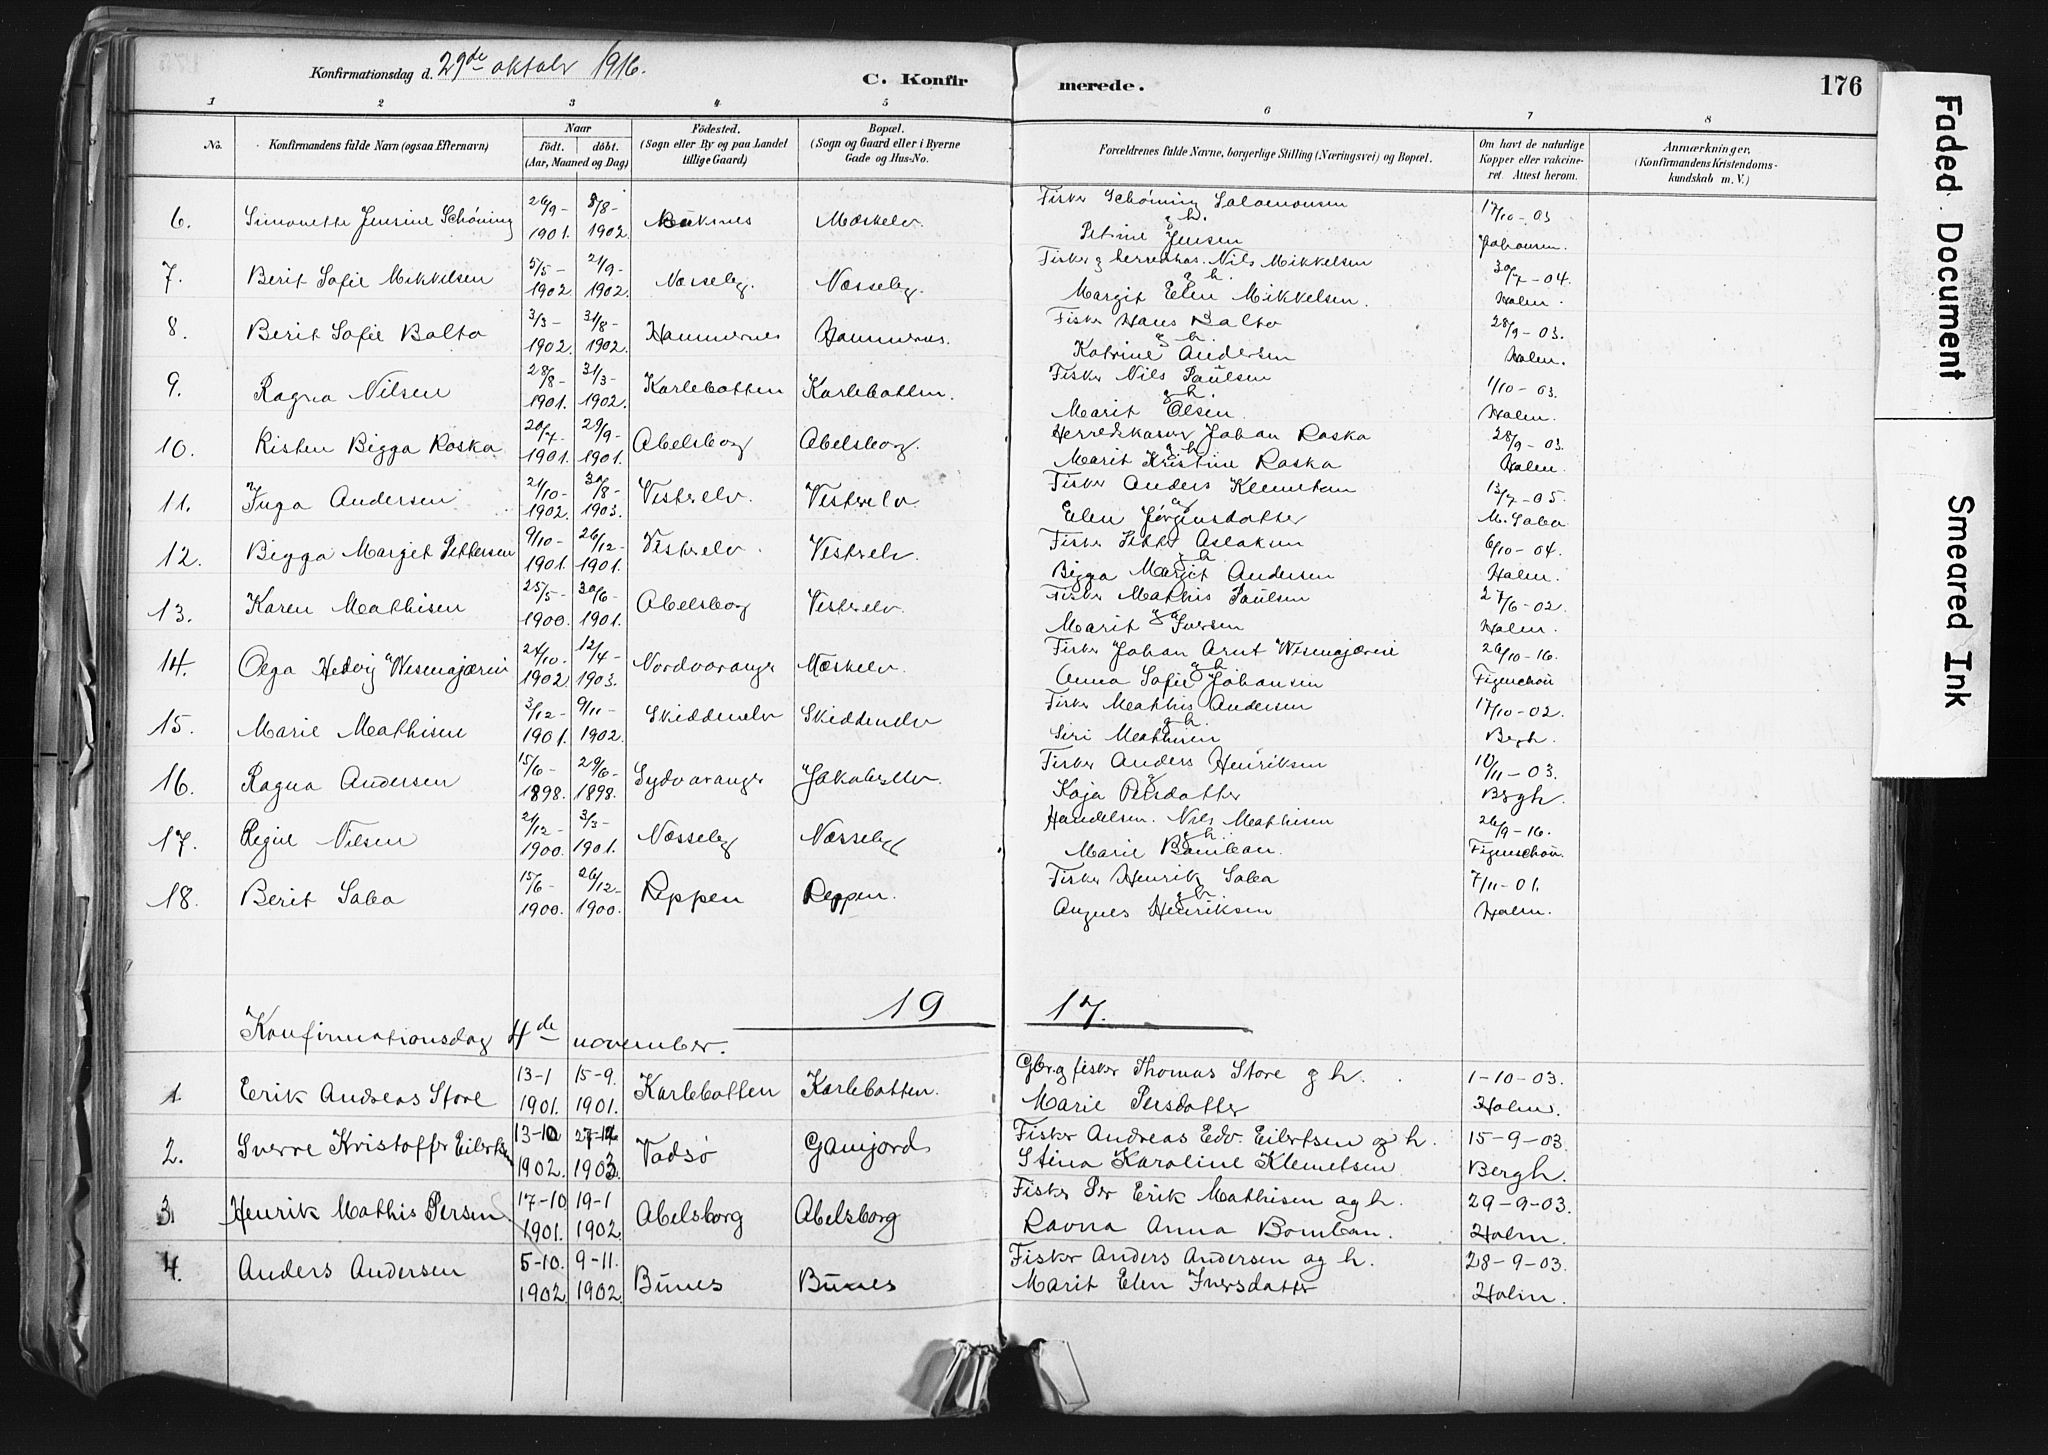 Konfirmationsdag d. 29de oktobr 1916.
C. Konfirmerede.
176
1 2 3 4 5 6 7 8
No.
Konfirmandens fulde Navn (ogsaa Efternavn)
Naar
født. døbt.
(Aar, Maaned og Dag)
Fødested.
(Sogn eller By og paa Landet
tillige Gaard)
Bopæl.
(Sogn og Gaard eller i Byerne
Gade og Hus-No.
Forældrenes fulde Navne, borgerlige Stilling (Næringsvei) og Bopæl.
Om havt de naturlige
Kopper eller vakcine-
ret. Attest herom.
Anmærkninger.
(Konfirmandens Kristendoms-
kundskab m. V.)
6. Simonette Jensine Schöning 26/9-1901. 8/8-1902. Mæskelv. Fisker Schöning Salomonsen g h. Petrine Jensen 17/10-03 Johansen.
7. Berit Sofie Mikkelsen 5/5-1902 21/9-1902. Næsseby. Næsseby. Fisker Nils Mikkelsen g h. Margit Elen Mikkelsen. 30/7-04. Holm.
8. Berit Sofie Balto 3/3-1902. 31/8-1902. Hammernes Hammernes. Fisker Hans Balto g h. Katrine Andersen 28/9-03. Holm.
9. Ragna Nilsen 28/8-1901. 31/3-1902. Karlebotten Karlebotten. Fisker Nils Paulsen g h. Marit Olsen. 1/10-03. Holm.
10. Kisten Bigga Roska 20/7-1901. 29/9-1901. Abelsborg Abelsborg. Johan Roska g h Marit Kristine Roska 28/9-03. Holm.
11. Inga Andersen 21/10-1902. 30/8-1903. Vesterelv. Vesterelv Fisker Anders Klemetsen g Elen Jørgensdatter 13/7-05. M. Saba
12. Bigga Margit Pettersen 9/10-1901. 26/12-1901. Vesterelv. Vesterelv. Fisker Petter Aslaksen g h Bigga Margit Andersen 6/10-04. Holm.
13. Karen Mathisen 25/5-1900. 30/6-1901. Abelsborg Vesterelv. Fisker Mathis Paulsen g Marit Iversen 27/6-02. Holm.
14. Olga Hedvig Wesmajærvi 24/10-1902 12/4-1903. Nordvaranger Mæskelv. Fisker Johan Arnt Wesmajærvi g h Anna Sofie Johansen 26/10-16. Figenschou
15. Marie Mathisen 3/12-1901. 9/11-1902. Skiddenelv Skiddenelv Fisker Mathis Andersen g h. Siri Mathisen 17/10-02. Bergh.
16. Ragna Andersen 15/6-1898. 29/6-1898. Sydvaranger Jakobselv. Fisker Anders Henriksen g Kaja Persdatter 10/11-03. Bergh.
17. Regine Nilsen 21/12-1900. 3/3-1901. Næsseby Næsseby Handelsm. Nils Mathisen g h. Marie Bomban. 26/9-16. Figenschou.
18. Berit Saba 15/6-1900. 26/12-1900. Reppen Reppen. Fisker Henrik Saba g h Angnes Henriksen 7/11-01. Holm.
19 17.
Konfirmationsdag 4de november.
1. Erik Andreas Store 13-1 1901. 15-9. 1901. Karlebotten Karlebotten. Gbr. g fisker Thomas Store g h. Marie Persdatter 1-10-03. Holm.
2. Sverre Kristoffer Eilertsen 13-10 1902. 1903. Vadsø Gamjord Fisker Andreas Edv. Eilertsen og h. Stina Karoline Klemetsen 15-9-03 Bergh.
3. Henrik Mathis Persen 17-10 1901. 19-1 1902. Abelsborg Abelsborg Fisker Per Erik Mathisen og h. Ravna Anna Bomban. 29-9-03. Holm.
4. Anders Andersen 5-10. 1902. 9-11. 1902. Bunes Bunes Fisker Anders Andersen og h. Marit Elen Iversdatter 28-9-03. Holm.
Faded Document
Smeared Ink